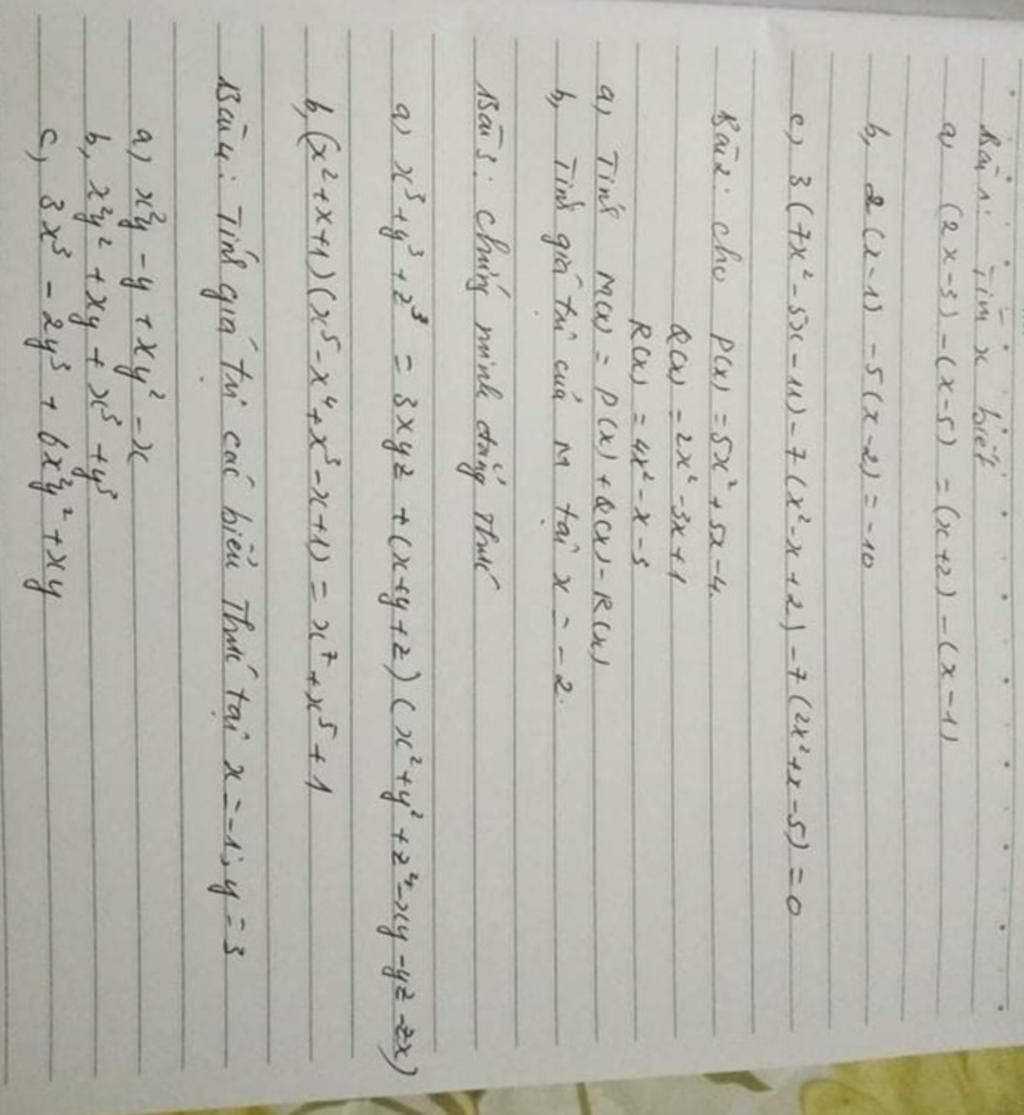 Bài 1: Tìm x biết
a, (2x-3) - (x-5) = (x+2) - (x-1)
b, 2(x-1) - 5(x-2) = -10
c, 3(7x² - 5x - 11) - 7(x² - x + 2) - 7(2x² + x - 5) = 0
Bài 2: cho P(x) = 5x² + 5x - 4.
Q(x) = 2x² - 3x + 1
R(x) = 4x² - x - 3
a, Tính M(x) = P(x) + Q(x) - R(x)
b, Tính giá trị của M tại x = -2.
Bài 3: chứng minh đẳng thức
a, x³ + y³ + z³ = 3xyz + (x+y+z)(x² + y² + z² - xy - yz - zx)
b, (x² + x + 1)(x⁵ - x⁴ + x³ - x + 1) = x⁷ + x⁵ + 1
Bài 4: Tính giá trị các biểu thức tại x = -1; y = 3
a, x²y - y + xy² - x
b, x²y² + xy + x³ + y³
c, 3x³ - 2y³ + 6x²y² + xy